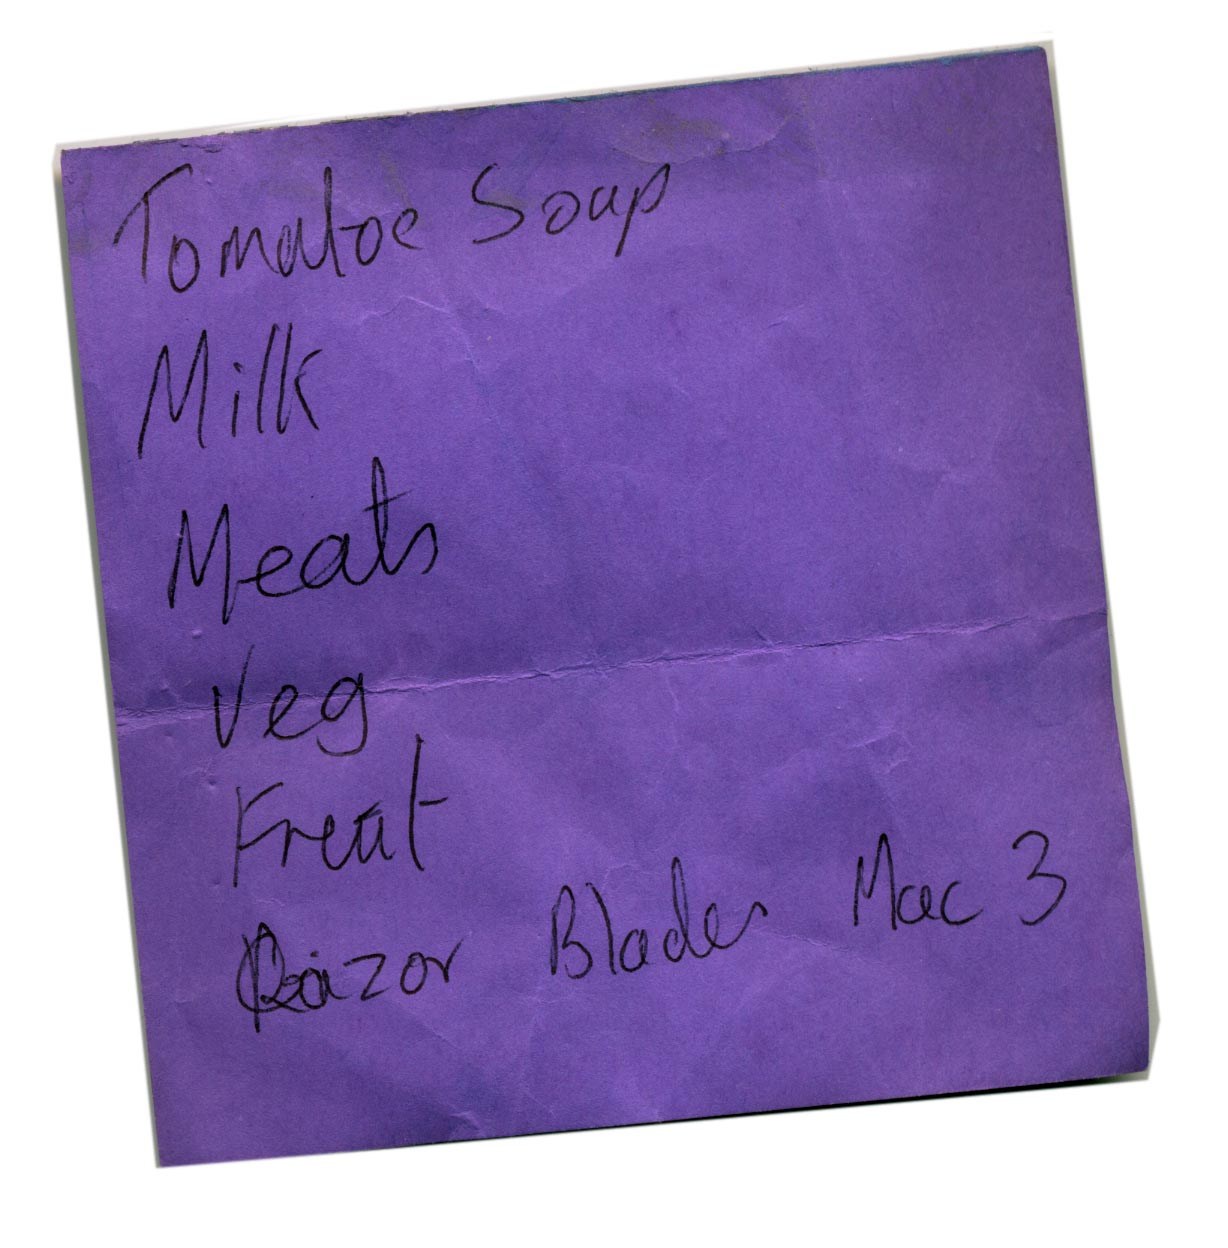 Tomatoe Soup
Milk
Meats
Veg
Freut
Razor Blades Mac 3